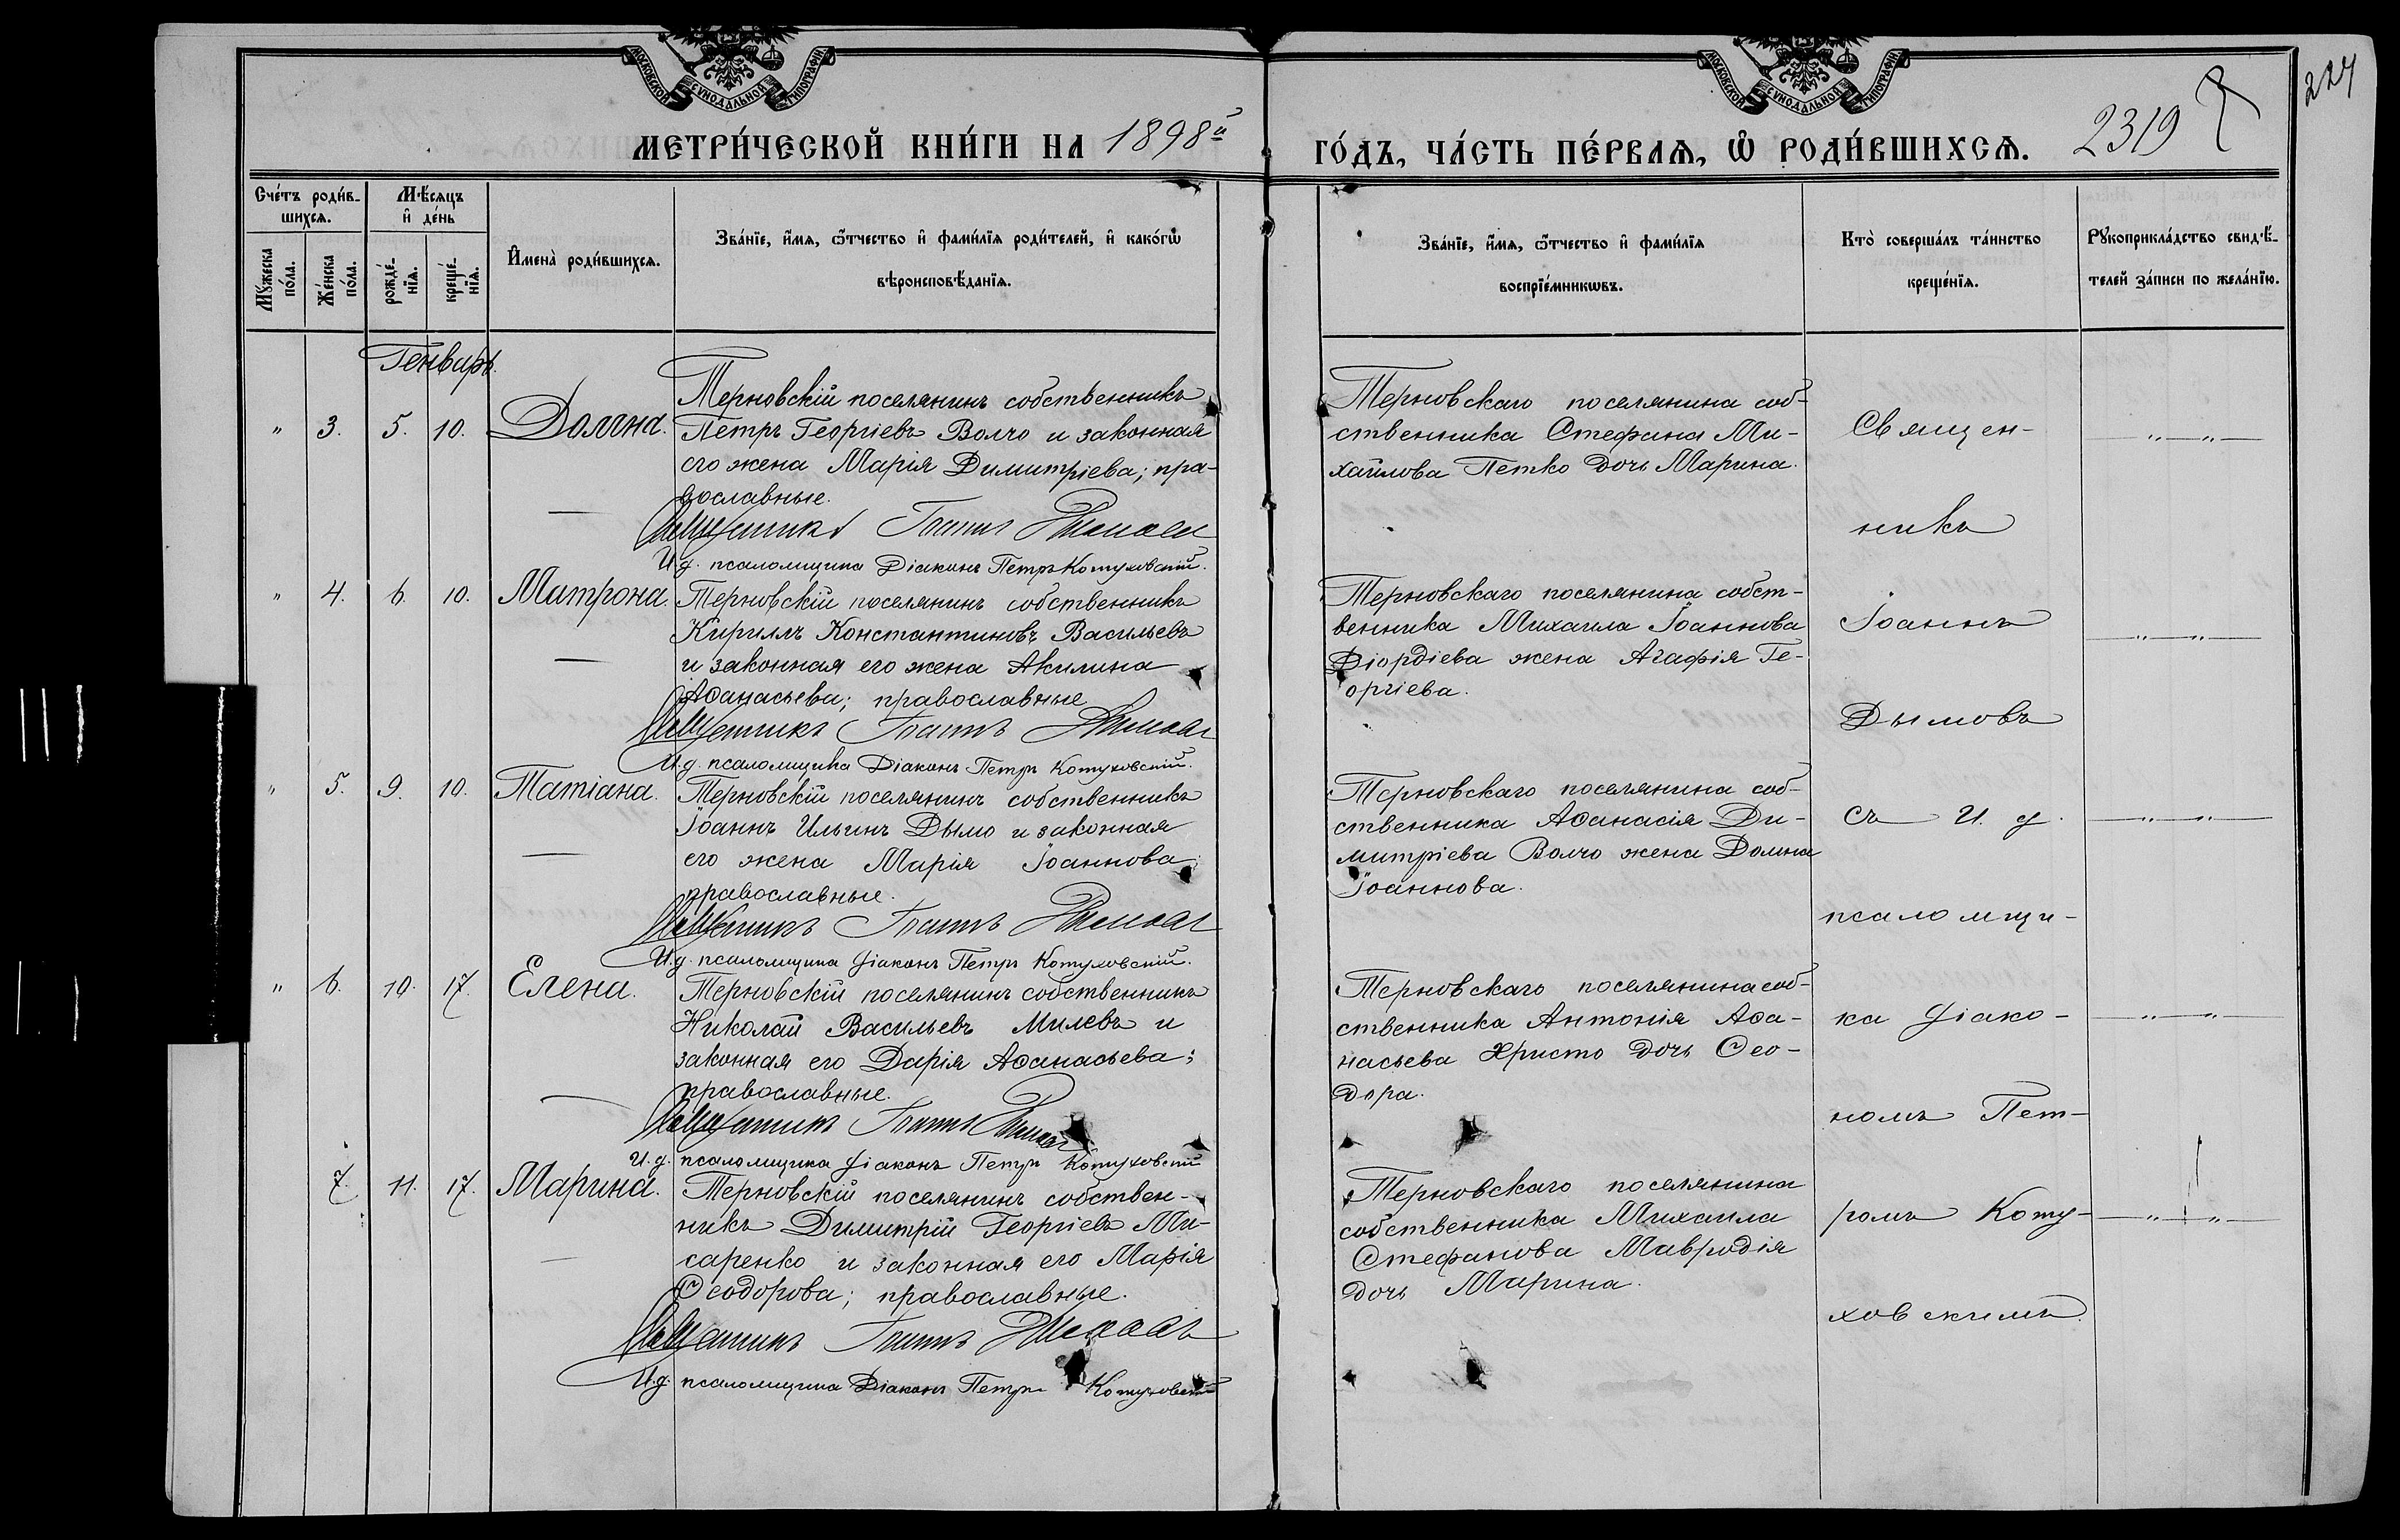 МОСКОВСКОЙ СУНОДАЛЬНОЙ ТИПОГРАФІИ
МОСКОВСКОЙ СУНОДАЛЬНОЙ ТИПОГРАФІИ
227
МЕТРИ́ЧЕСКОЙ КНИ́ГИ НА 1898й ГО́ДЪ, ЧА́СТЬ ПЕ́РВАѦ, Ѽ РОДИ́ВШИХСѦ. 2319
Сче́тъ роди́в-
шихсѧ.
Мꙋ́жеска
по́ла.
Же́нска
по́ла.
Мѣ́сѧцъ
и҆ де́нь
рожде́-
нїѧ.
креще́-
нїѧ.
И҆мена̀ роди́вшихсѧ.
Зва́нїе, и҆́мѧ, ѻ҆́тчество и҆ фами́лїѧ роди́телей, и҆ како́гѡ
вѣроисповѣ́данїѧ.
Зва́нїе, и҆́мѧ, ѻ҆́тчество и҆ фами́лїѧ
воспрїе́мникѡвъ.
Кто̀ соверша́лъ та́инство
креще́нїѧ.
Рꙋкоприкла́дство свидѣ́-
телей за́писи по жела́нїю.
Генварь.
" 3. 5. 10. Домна.
Терновскій поселянинъ собственникъ
Петръ Георгіевъ Волчо и законная
его жена Марія Димитріева; пра-
вославные.
Священникъ Іоаннъ Дымовъ
И.д. псаломщика Діаконъ Петръ Котуховскій.
Терновскаго поселянина соб-
ственника Стефана Ми-
хайлова Петко дочь Марина.
" 4. 6. 10. Матрона.
Терновскій поселянинъ собственникъ
Кириллъ Константиновъ Васильевъ
и законная его жена Акилина
Аѳанасьева; православные
Священникъ Іоаннъ Дымовъ
И.д. псаломщика Діаконъ Петръ Котуховскій.
Терновскаго поселянина собст-
венника Михаила Іоаннова
Діордіева жена Агафія Ге-
оргіева.
" 5. 9. 10. Татіана.
Терновскій поселянинъ собственникъ
Іоаннъ Ильинъ Дымо и законная
его жена Марія Іоаннова;
православные.
Священникъ Іоаннъ Дымовъ
И.д. псаломщика Діаконъ Петръ Котуховскій.
Терновскаго поселянина соб-
ственника Аѳанасія Ди-
митріева Волчо жена Домна
Іоаннова.
" 6. 10. 17. Елена.
Терновскій поселянинъ собственникъ
Николай Васильевъ Милевъ и
законная его Дарія Аѳанасьева;
православные.
Священникъ Іоаннъ Дымовъ
И.д. псаломщика Діаконъ Петръ Котуховскій
Терновскаго поселянина соб-
ственника Антонія Аѳа-
насьева Христо дочь Ѳео-
дора.
7. 11. 17. Марина.
Терновскій поселянинъ собствен-
никъ Димитрій Георгіевъ Ми-
саренко и законная его Марія
Ѳеодорова; православные.
Священникъ Іоаннъ Дымовъ
И.д. псаломщика Діаконъ Петръ Котуховскій
Терновскаго поселянина
собственника Михаила
Стефанова Мавродія
дочь Марина.
Священ-
никъ
Іоаннъ
Дымовъ
съ И. д.
псаломщи-
ка Діако-
номъ Пет-
ромъ Коту-
ховскимъ.